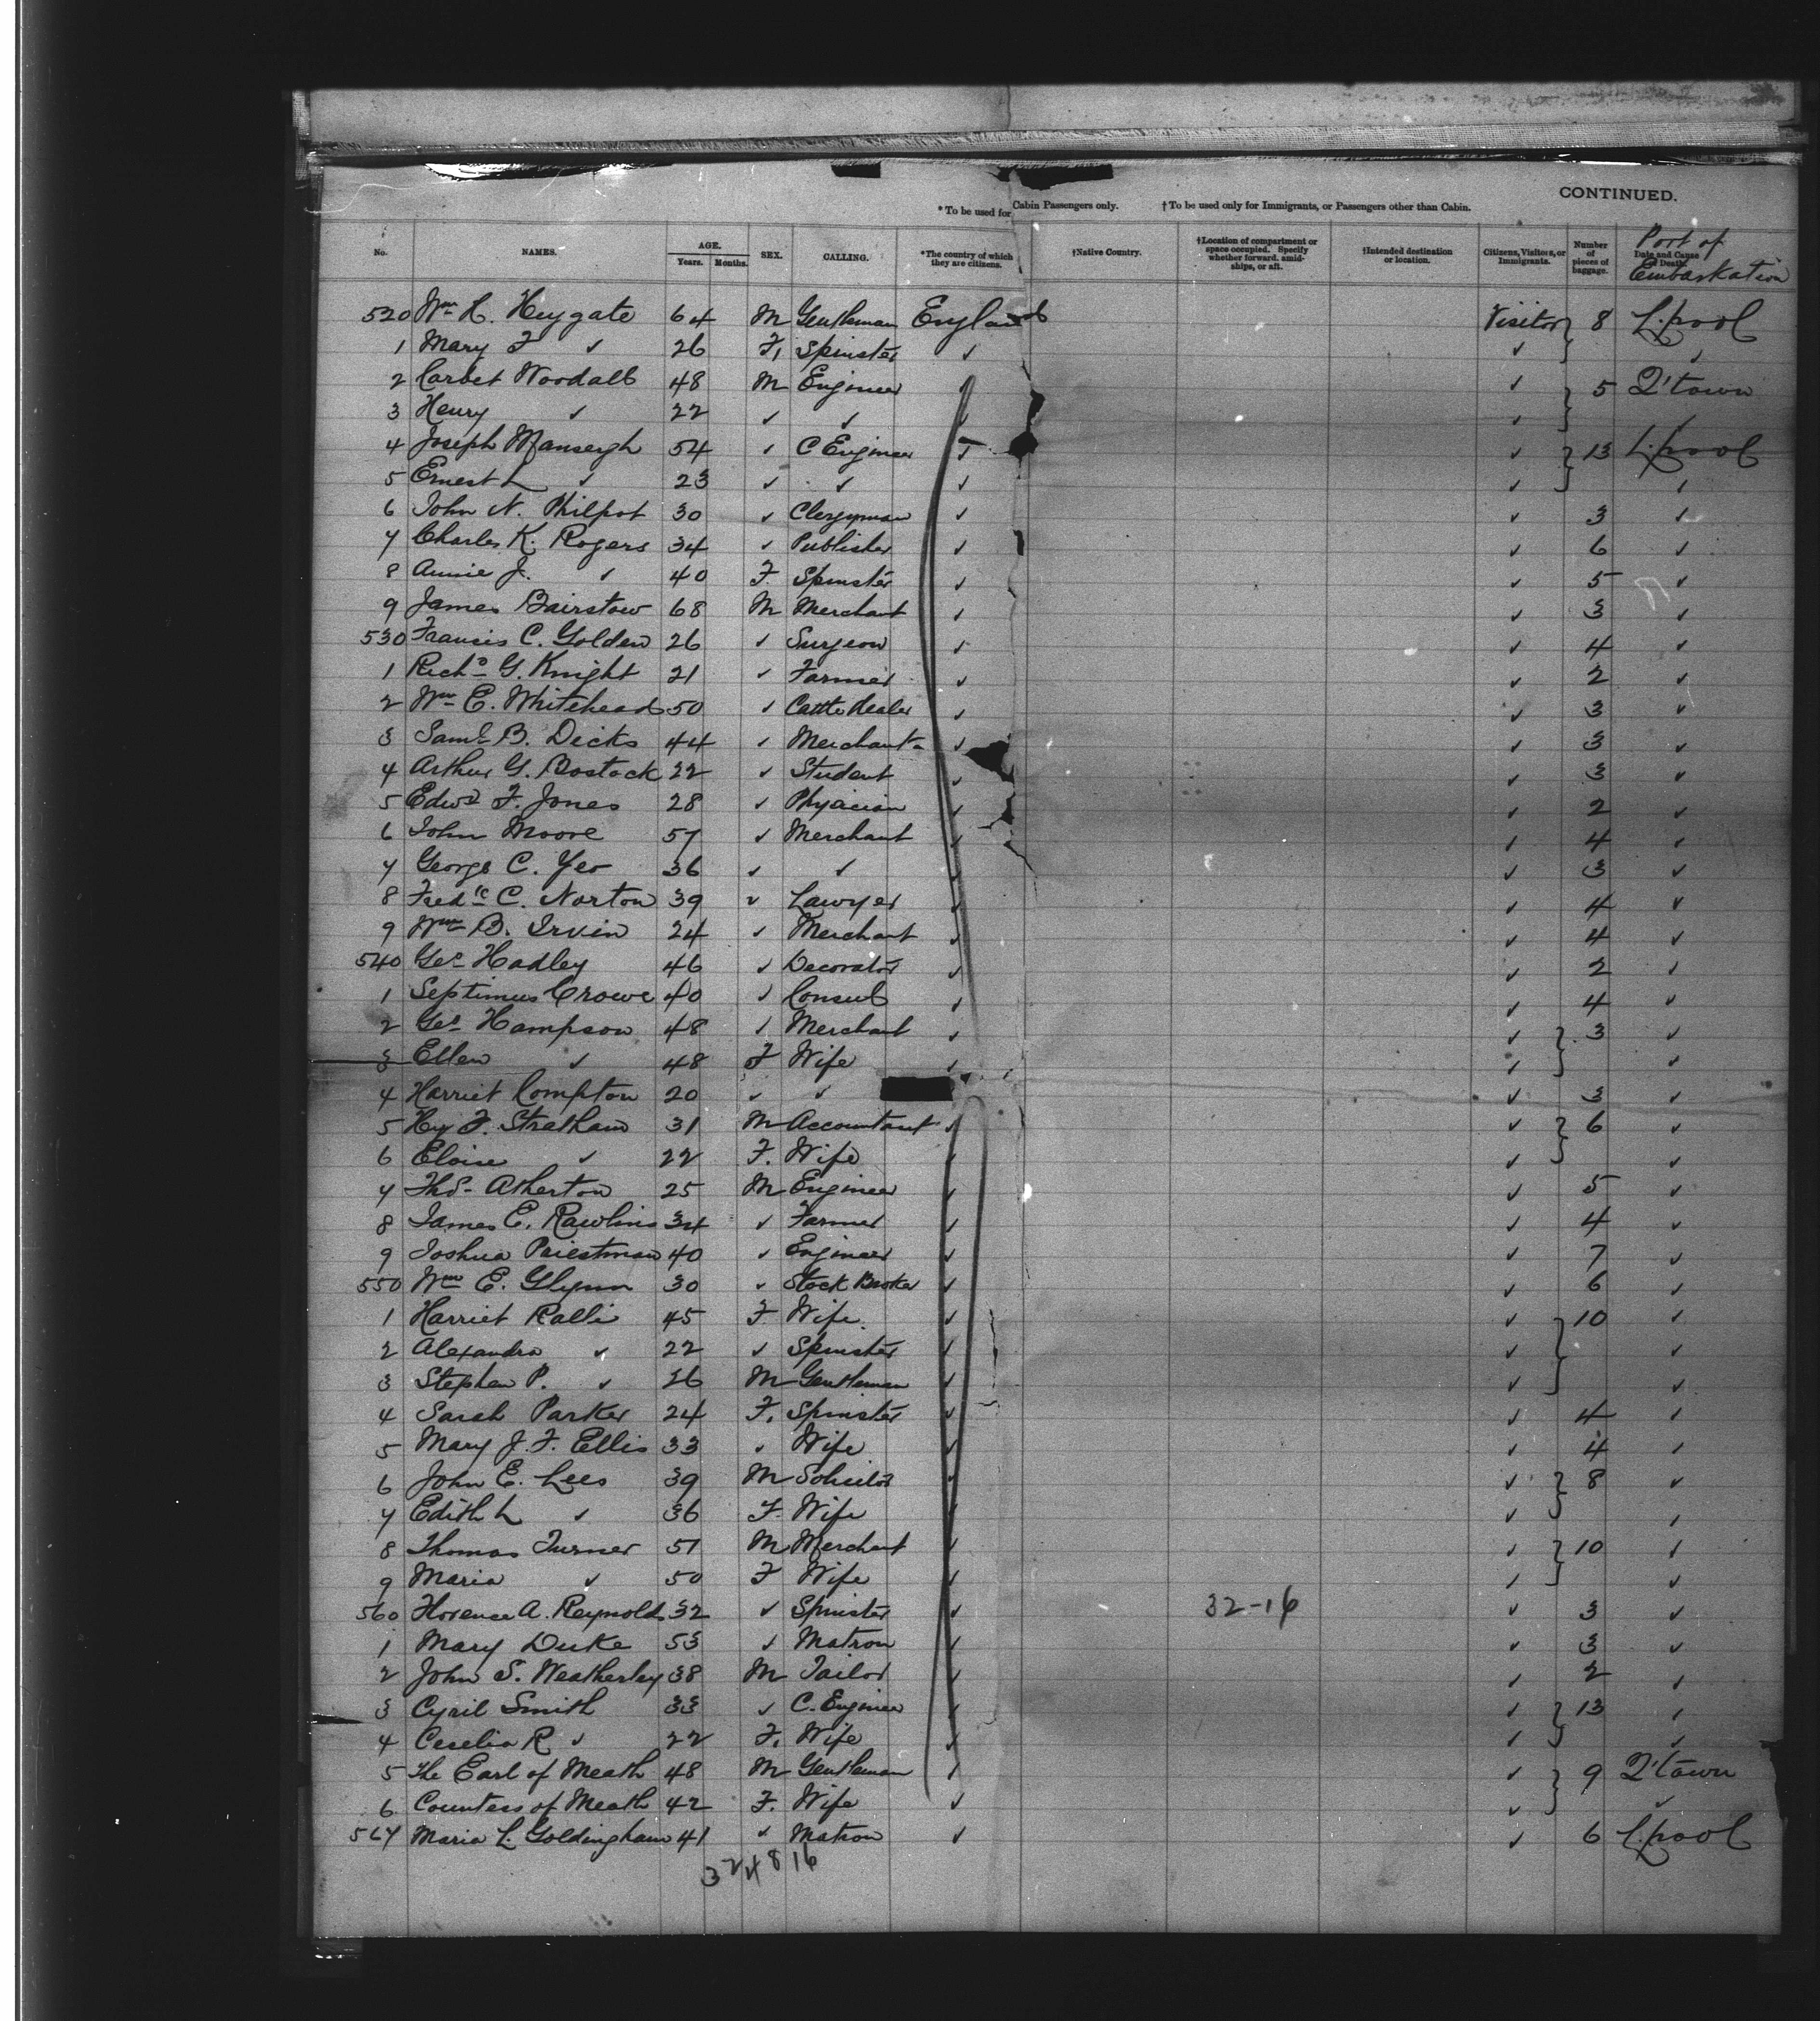 CONTINUED.
*To be used for Cabin Passengers only. †To be used only for Immigrants, or Passengers other than Cabin.
No. NAMES. AGE. Years. Months. SEX. CALLING. *The country of which they are citizens. †Native Country. †Location of compartment or space occupied. Specify whether forward, amidships, or aft. †Intended destination or location. Citizens, Visitors, or Immigrants. Number of pieces of baggage. Date and Cause of Death. Port of Embarkation
520 Wm H. Heygate 64 M Gentleman England Visitor } 8 L.pool
1 Mary F ✓ 26 F. Spinster ✓ ✓ ✓
2 Corbet Woodall 48 M Engineer ✓ ✓ } 5 Q'town
3 Henry ✓ 22 ✓ ✓ ✓ ✓ ✓
4 Joseph Mansergh 54 ✓ C Engineer ✓ ✓ } 13 L.pool
5 Ernest L ✓ 23 ✓ ✓ ✓ ✓ ✓
6 John N. Philpot 30 ✓ Clergyman ✓ ✓ 3 ✓
7 Charles K. Rogers 34 ✓ Publisher ✓ ✓ 6 ✓
8 Annie J. ✓ 40 F. Spinster ✓ ✓ 5 ✓
9 James Bairstow 68 M Merchant ✓ ✓ 3 ✓
530 Francis C. Golden 26 ✓ Surgeon ✓ ✓ 4 ✓
1 Richd G. Knight 21 ✓ Farmer ✓ ✓ 2 ✓
2 Wm E. Whitehead 50 ✓ Cattle dealer ✓ ✓ 3 ✓
3 Saml B. Dicks 44 ✓ Merchant ✓ ✓ 3 ✓
4 Arthur G. Bostock 22 ✓ Student ✓ ✓ 3 ✓
5 Edwd F. Jones 28 ✓ Physician ✓ ✓ 2 ✓
6 John Moore 57 ✓ Merchant ✓ ✓ 4 ✓
7 George C. Yeo 36 ✓ ✓ ✓ ✓ 3 ✓
8 Fredk C. Norton 39 ✓ Lawyer ✓ ✓ 4 ✓
9 Wm B. Irvin 24 ✓ Merchant ✓ ✓ 4 ✓
540 Geo Hadley 46 ✓ Decorator ✓ ✓ 2 ✓
1 Septimus Crowe 40 ✓ Consul ✓ ✓ 4 ✓
2 Geo Hampson 48 ✓ Merchant ✓ ✓ } 3 ✓
3 Ellen ✓ 48 F Wife ✓ ✓ ✓
4 Harriet Compton 20 ✓ ✓ ✓ 3 ✓
5 Hy F. Stratham 31 M Accountant ✓ ✓ } 6 ✓
6 Eloise ✓ 22 F. Wife ✓ ✓ ✓
7 Thos Atherton 25 M Engineer ✓ ✓ 5 ✓
8 James E. Rawlins 34 ✓ Farmer ✓ ✓ 4 ✓
9 Joshua Priestman 40 ✓ Engineer ✓ ✓ 7 ✓
550 Wm E. Glynn 30 ✓ Stock Broker ✓ ✓ 6 ✓
1 Harriet Ralli 45 F Wife ✓ ✓ } 10 ✓
2 Alexandra ✓ 22 ✓ Spinster ✓ ✓ ✓
3 Stephen P. ✓ 26 M Gentleman ✓ ✓ ✓
4 Sarah Parker 24 F. Spinster ✓ ✓ 4 ✓
5 Mary J. F. Ellis 33 ✓ Wife ✓ ✓ 4 ✓
6 John E. Lees 39 M Solicitor ✓ ✓ } 8 ✓
7 Edith L ✓ 36 F. Wife ✓ ✓ ✓
8 Thomas Turner 51 M Merchant ✓ ✓ } 10 ✓
9 Maria ✓ 50 F Wife ✓ ✓ ✓
560 Florence A. Reynolds 32 ✓ Spinster ✓ 32-16 ✓ 3 ✓
1 Mary Duke 53 ✓ Matron ✓ ✓ 3 ✓
2 John S. Weatherley 38 M Tailor ✓ ✓ 2 ✓
3 Cyril Smith 33 ✓ C. Engineer ✓ ✓ } 13 ✓
4 Cecelia R ✓ 22 F. Wife ✓ ✓ ✓
5 The Earl of Meath 48 M Gentleman ✓ ✓ } 9 Q'town
6 Countess of Meath 42 F. Wife ✓ ✓ ✓
567 Maria L. Goldingham 41 ✓ Matron ✓ ✓ 6 L.pool
32 48 16